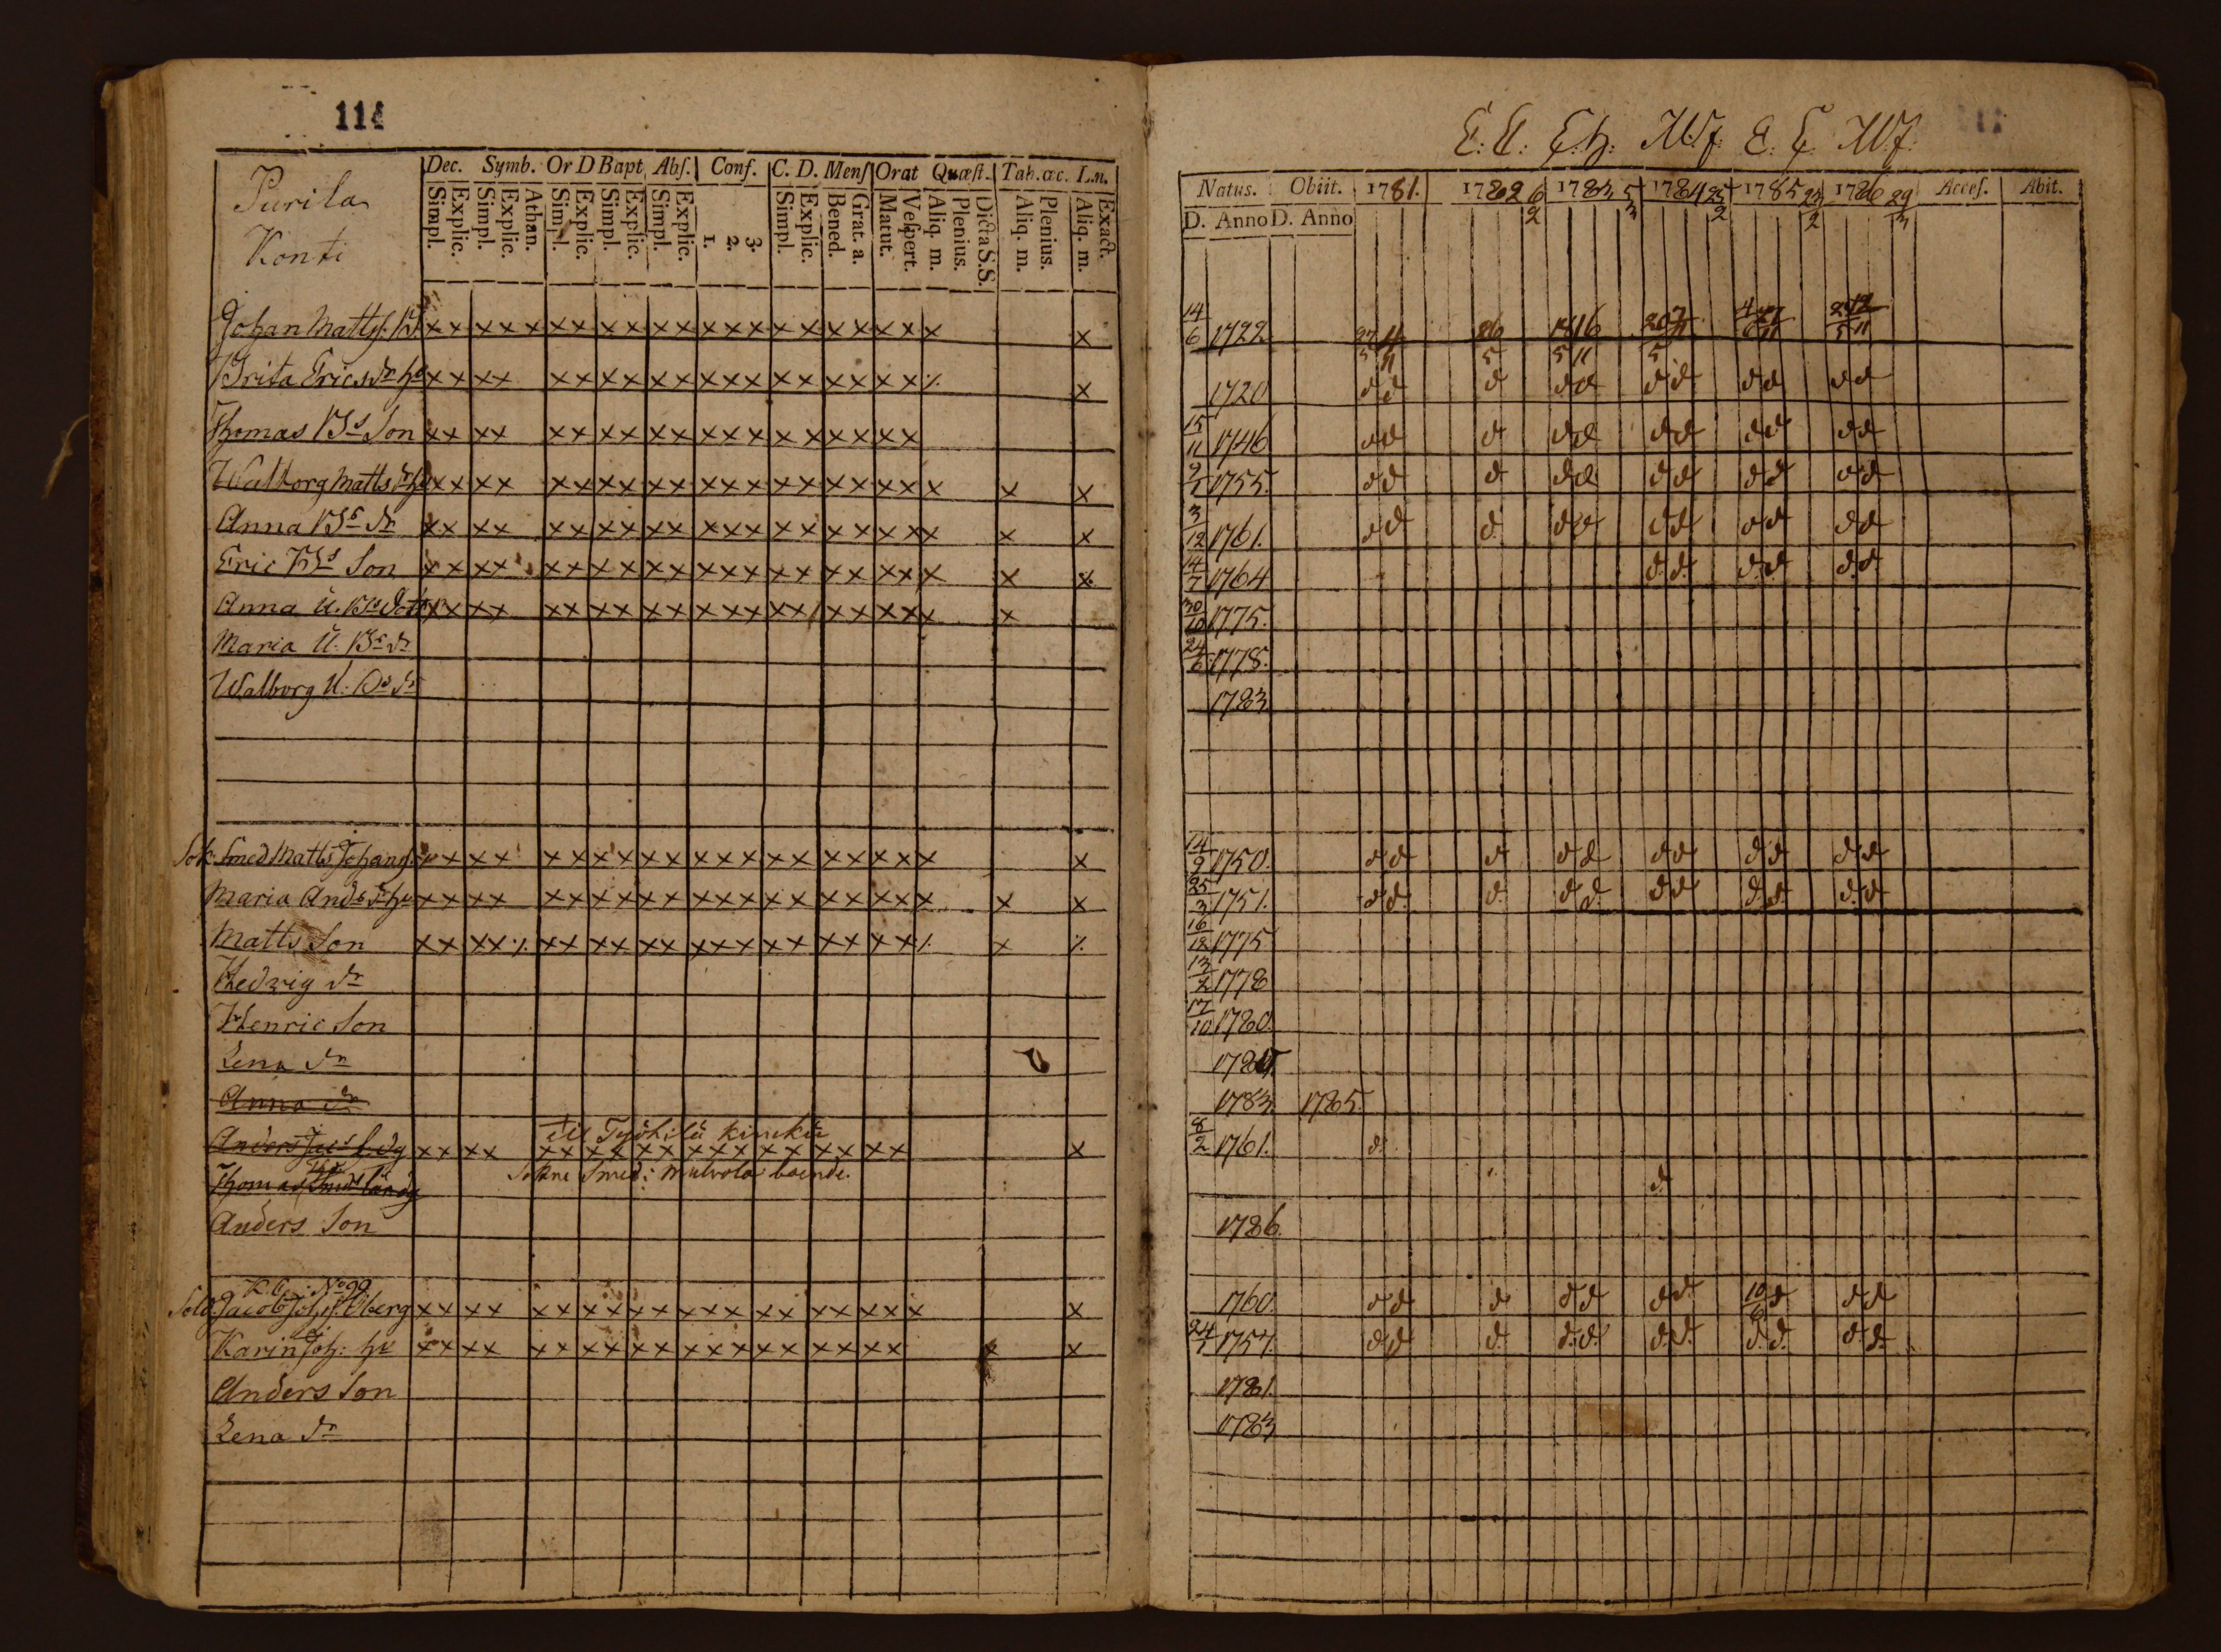 114
Purila
Konti
Dec. Symb. Or D Bapt, Abſ. Conf. C. D. Menſ Orat Quæſt. Tab. œc. L.n.
Simpl. Explic. Simpl. Explic. Athan. Simpl. Explic. Simpl. Explic. Simpl. Explic. 1. 2. 3. Simpl. Explic. Bened. Grat. a. Matut. Veſpert. Aliq. m. Plenius. Dicta S.S. Aliq. m. Plenius. Aliq. m. Exact.
Johan Mattsſ. x x x x x x x x x x x x x x x x x x x x x x
Brita Erics dr hu x x x x x x x x x x x x x x x x x x x x
Thomas Bs Son x x x x x x x x x x x x x x x x x x x
Walborg Matts dr hu x x x x x x x x x x x x x x x x x x x x x x
Anna Bs dr x x x x x x x x x x x x x x x x x x x x x x
Eric Bs Son x x x x x x x x x x x x x x x x x x x x x x
Anna U. Bs dotr x x x x x x x x x x x x x x x x x x x x x
Maria U. Bs dr
Walborg U. Bs dr
Sok. Smed Matts Johansſ. x x x x x x x x x x x x x x x x x x x x x
Maria Ands dr hu x x x x x x x x x x x x x x x x x x x x x x
Matts Son x x x x x x x x x x x x x x x x x x x x
Hedvig dr
Henric Son
Lena dr
Anna dr
til Työkilä Kiucku
Anders x x x x x x x x x x x x x x x x x x x x
Sokne Smed: Mulvola boende.
Thomas
Anders Son
No 99
Sold. Jacob Johsſ. Öberg x x x x x x x x x x x x x x x x x x x x x
Karin Joh: hu x x x x x x x x x x x x x x x x x x x x x
Anders Son
Lena dr
Natus. Obiit. 1781. 1782 6/2 1783 5/3 1784 25/2 1785 23/2 1786 29/3 Acceſ. Abit.
D. Anno D. Anno
14/6 1722
1720 d d d d d d d d d d d
15/11 1746 d d d d d d d d d d d
1755. d d d d d d d d d d d
3/12 1761. d d d d d d d d d d d
14/7 1764 d. d. d. d d. d
30/10 1775.
24/6 1778.
1783
14/9 1750. d d d d d d d d d d d
25/3 1751. d d. d. d d. d d d. d. d. d
16/12 1775
13/2 1778
17/10 1780.
1783. 1785.
8/2 1761. d.
d.
1786.
1760. d d d d d d d 10/6 d d d
24 1757. d d d. d. d. d. d. d. d. d. d.
1781.
1783